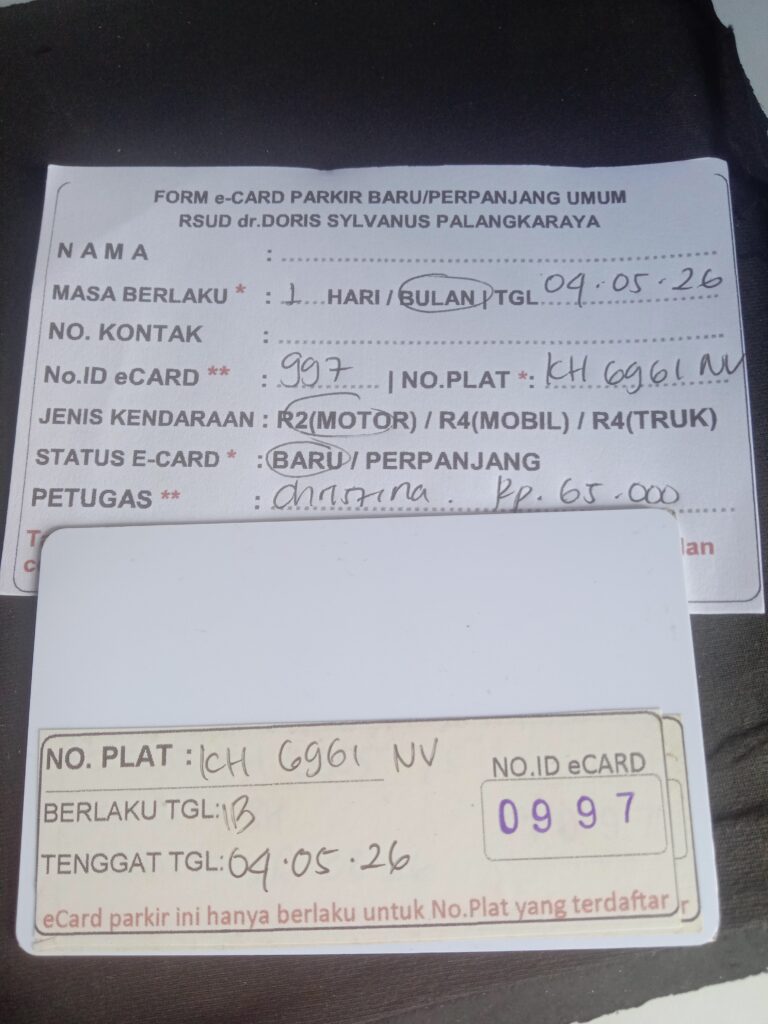 FORM e-CARD PARKIR BARU/PERPANJANG UMUM
RSUD dr.DORIS SYLVANUS PALANGKARAYA
NAMA :
MASA BERLAKU * : 1 HARI / BULAN | TGL 04.05.26
NO. KONTAK :
No.ID eCARD ** : 997 | NO.PLAT *: KH 6961 NV
JENIS KENDARAAN : R2(MOTOR) / R4(MOBIL) / R4(TRUK)
STATUS E-CARD * : BARU / PERPANJANG
PETUGAS ** : Christina. Rp. 65.000
NO. PLAT : KH 6961 NV
NO.ID eCARD
0997
BERLAKU TGL: 1B
TENGGAT TGL: 04.05.26
eCard parkir ini hanya berlaku untuk No.Plat yang terdaftar